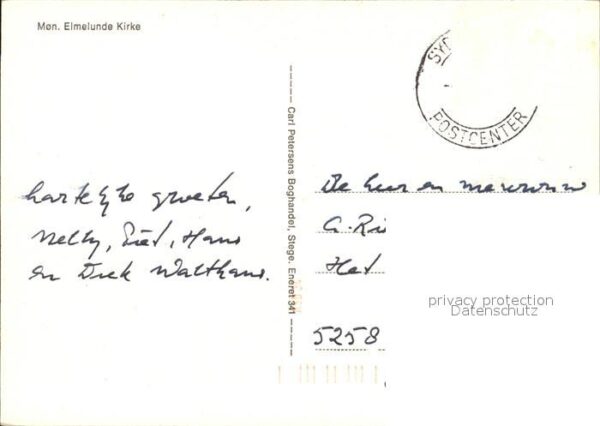 Møn. Elmelunde Kirke
SYD
POSTCENTER
Carl Petersens Boghandel, Stege. Eneret 341
hartelyke groeten,
Nelly, Piet, Hans
en Dick Walthaus.
De heer en mevrouw
A. Ri
Het
5258
privacy protection
Datenschutz